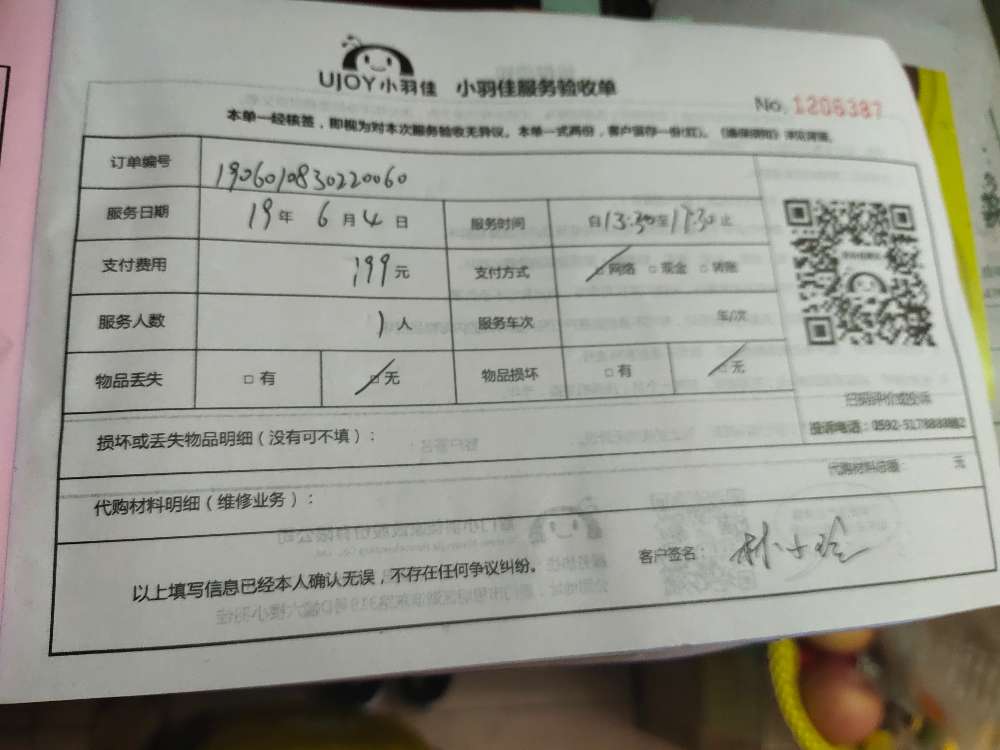 UJOY小羽佳 小羽佳服务验收单
No. 1206387
本单一经核签，即视为对本次服务验收无异议。本单一式两份，客户留存一份(红)。
订单编号 1906010830220060
服务日期 19年 6月4日 服务时间 自13:30至17:30止
支付费用 199元 支付方式 □网络 □现金 □转账
服务人数 1人 服务车次 车/次
物品丢失 □有 □无 物品损坏 □有 □无
扫码评价或投诉
损坏或丢失物品明细（没有可不填）：
投诉电话：0592-
代购材料明细（维修业务）：
代购材料总额： 元
以上填写信息已经本人确认无误，不存在任何争议纠纷。
客户签名：